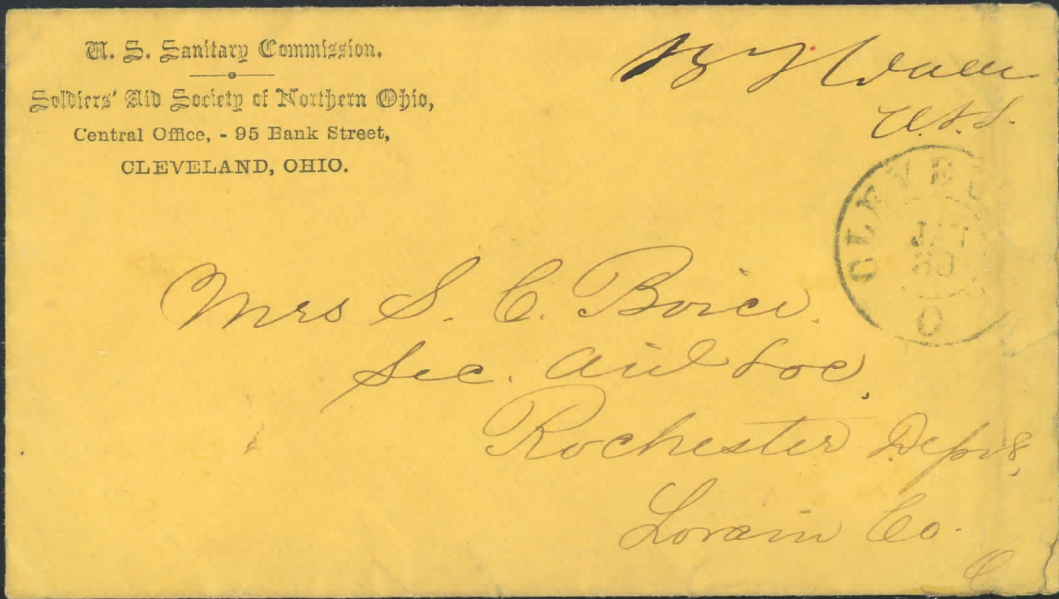 U. S. Sanitary Commission.
Soldiers' Aid Society of Northern Ohio,
Central Office, - 95 Bank Street,
CLEVELAND, OHIO.
B F Wade
U.S.S.
CLEVEL
JAN
30
O
Mrs S. C. Boice.
Sec. Aid Soc,
Rochester Depot,
Lorain Co.
O